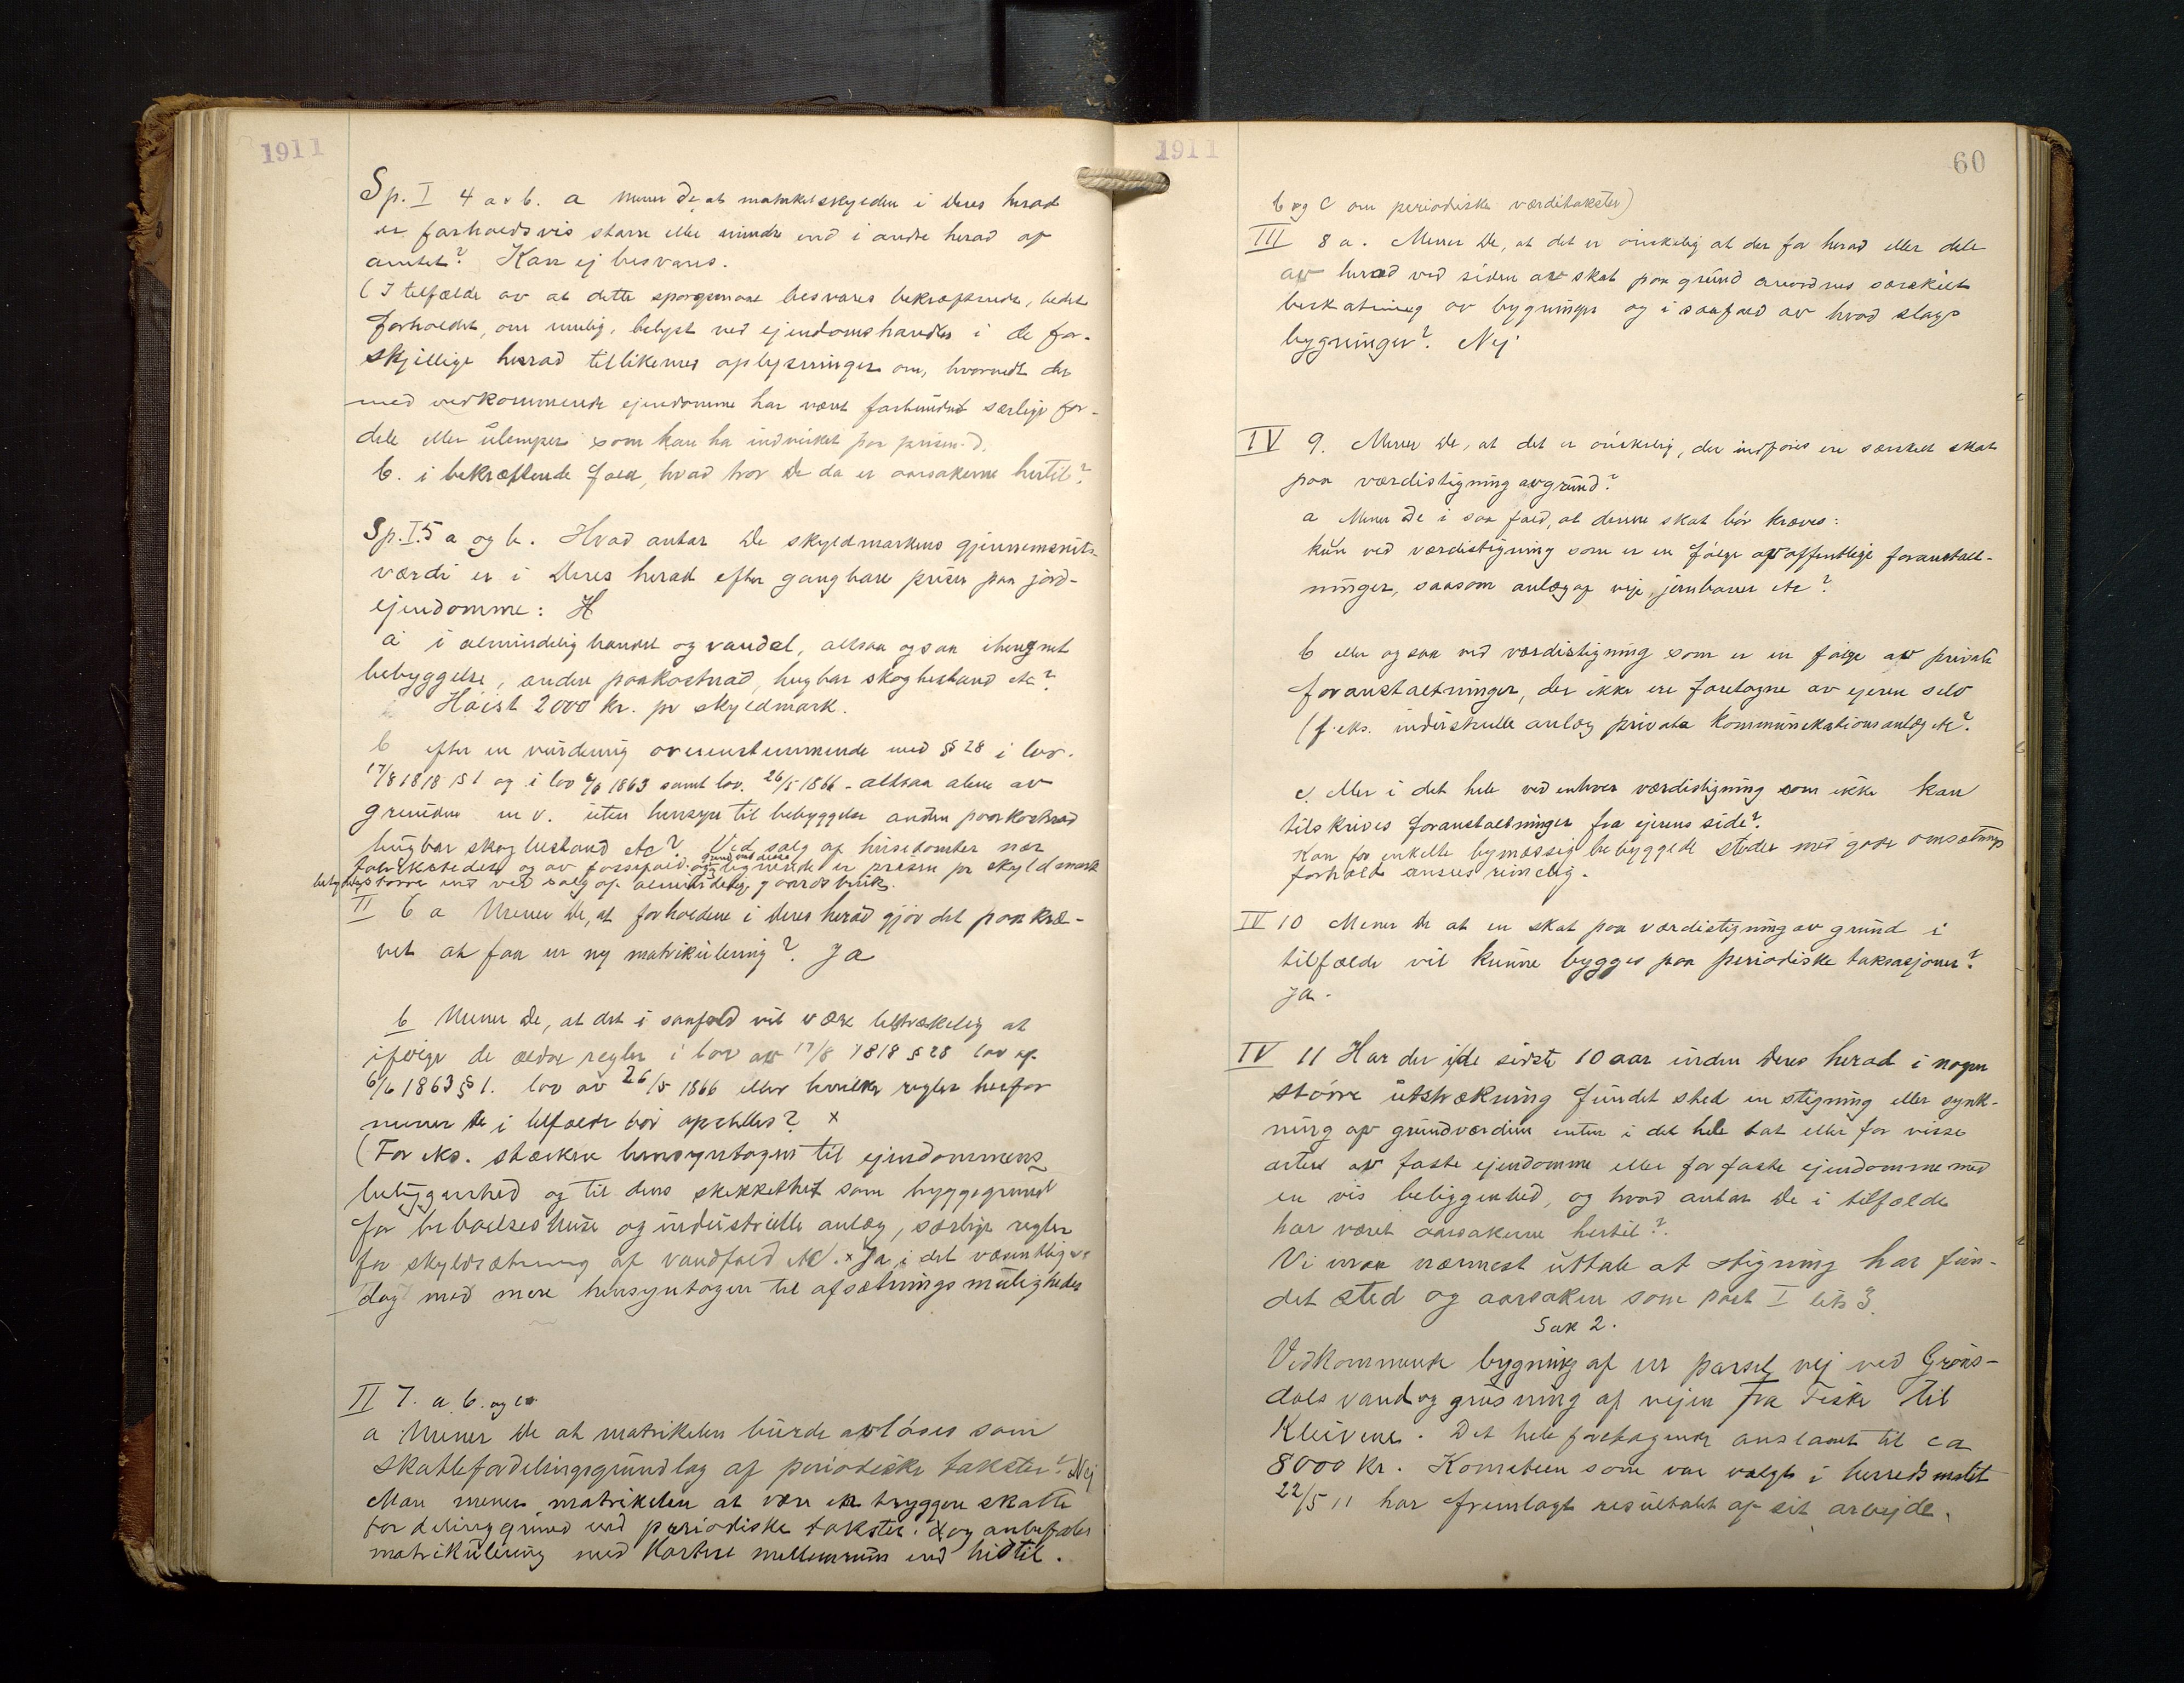 1911
Sp. I 4 a o b. a mener De, at matrikelskylden i Deres herad
er forholdsvis større eller mindre end i andre herad af
amtet? Kan ej besvares.
(I tilfælde av at dette spørgsmaal besvares bekræftende, bedes
forholdet, om mulig, belyst ved ejendomshandler i de for-
skjellige herad tillikemed oplysninger om, hvorvidt der
med vedkommende ejendomme har været forbundet særlige for-
dele eller ulemper som kan ha indvirket paa prisen.)
b. i bekræftende fald, hvad tror De da er aarsakerne hertil?
Sp. I. 5 a og b. Hvad antar De skyldmarkens gjennemsnits-
værdi er i Deres herad efter gangbare priser paa jord-
ejendomme: H
a i almindelig handel og vandel, altsaa ogsaa iberegnet
bebyggelse, anden paakostnad, hugbar skogbestand etc?
Høist 2000 kr. pr skyldmark.
b efter en vurdering overensstemmende med § 28 i lov.
17/8 1818 § 1 og i lov 6/6 1863 samt lov. 26/5 1866 - altsaa alene av
grunden m v. uten hensyn til bebyggelse anden paakostnad
hugbar skogbestand etc? Ved salg af husetomter nær
fabriksteder og av fossefald og lignende er prisen pr skyldmark
betydelig større end ved salg af almindelig gaardsbruk.
II 6 a Mener De, at forholdene i Deres herad gjør det paakræ-
vet at faa en ny matrikulering? Ja
b Mener De, at det i saafald vil være tilstrækkelig at
ifølge de ældre regler i lov av 17/8 1818 § 28 lov af
6/6 1863 § 1. lov av 26/5 1866 eller hvilke regler herfor
mener De i tilfælde bør opstilles? x
(For eks. stærkere hensyntagen til ejendommens
beliggenhed og til dens skikkethet som byggegrund
for beboelseshuse og industrielle anlæg, særlige regler
for skyldsætning af vandfald etc). x Ja, i det væsentligste
dog med mere hensyntagen til afsætningsmuligheder
II 7. a. b. og c
a Mener De at matrikelen burde avløses som
skattefordelingsgrundlag af periodiske takster? Nej
Man mener matrikelen at være en tryggere skatte
fordelingsgrund end periodiske takster. x og anbefaler
matrikulering med kortere mellemrum end hidtil.
1911
60
b og c om periodiske værditakster)
III 8 a. Mener De, at det er ønskelig at der for herad eller dele
av herad ved siden av skat paa grund anordnes særskilt
beskatning av bygninger og i saafald av hvad slags
bygninger? Nej
IV 9. Mener De, at det er ønskelig, der indføres en særskilt skat
paa værdistigning av grund?
a Mener De i saa fald, at denne skat bør kræves:
kun ved værdistigning som er en følge av offentlige foranstalt-
ninger, saasom anlæg af veje, jernbaner etc?
b eller ogsaa ved værdistigning som er en følge av private
foranstaltninger, der ikke ere foretagne av ejeren selv
(f. eks. industrielle anlæg private kommunikationsanlæg etc?
c. eller i det hele ved enhver værdistigning som ikke kan
tilskrives foranstaltninger fra ejerens side?
Kan for enkelte bymæssig bebyggede steder med gode omsætnings
forholde ansees rimelig.
IV 10 Mener De at en skat paa værdistigning av grund i
tilfælde vil kunne bygges paa periodiske taksasjoner?
Ja.
IV 11 Har der i de sidste 10 aar inden Deres herad i nogen
større utstrækning fundet sted en stigning eller synk-
ning av grundværdien enten i det hele tat eller for visse
arter av faste ejendomme eller for faste ejendomme med
en vis beliggenhed, og hvad antar De i tilfælde
har været aarsakerne hertil?
Vi maa nærmest uttale at stigning har fun-
det sted og aarsaken som post I litr 3.
Sak 2.
Vedkommende bygning af en parsel vej ved Grøns-
dals vand og grusning af vejen fra Fiske til
Kleivene. Det hele foretagende anslaaet til ca
8000 kr. Komiteen som var valgt i herredsmøtet
22/5 11 har fremlagt resultatet af sit arbejde.